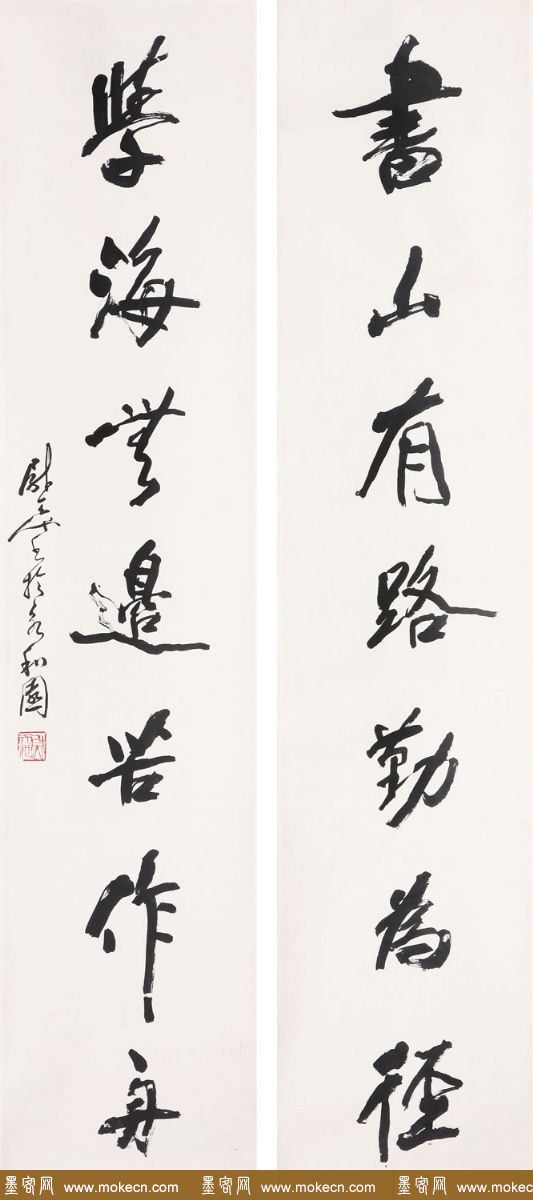 書山有路勤為徑
學海無邊苦作舟
於 和園
墨客网 www.mokecn.com 墨客网 www.mokecn.com 墨客网 www.mokec